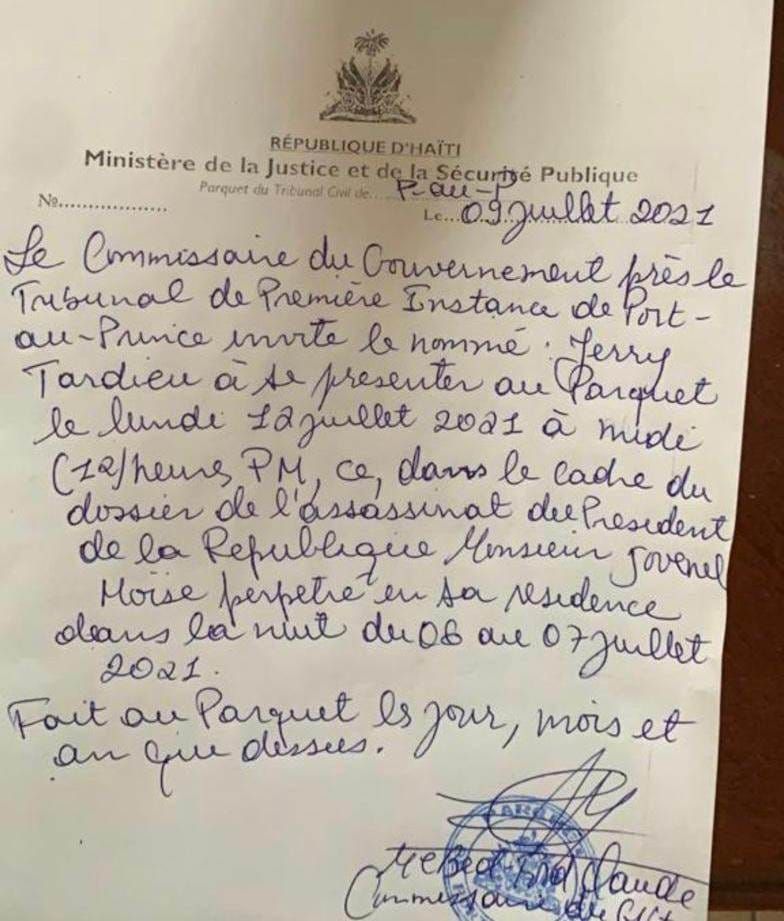 RÉPUBLIQUE D'HAÏTI
Ministère de la Justice et de la Sécurité Publique
Parquet du Tribunal Civil de... P-au-P
No..................
Le... 09 juillet 2021
Le Commissaire du Gouvernement près le
Tribunal de Première Instance de Port-
au-Prince invite le nommé : Jerry
Tardieu à se presenter au Parquet
le lundi 12 juillet 2021 à midi
(12) heures PM, ce, dans le cadre du
dossier de l'assassinat du President
de la Republique Monsieur Jovenel
Moïse perpetré en sa residence
dans la nuit du 06 au 07 juillet
2021.
Fait au Parquet les jour, mois et
an que dessus.
PARQUET
Me Bed-Ford Claude
Commissaire du